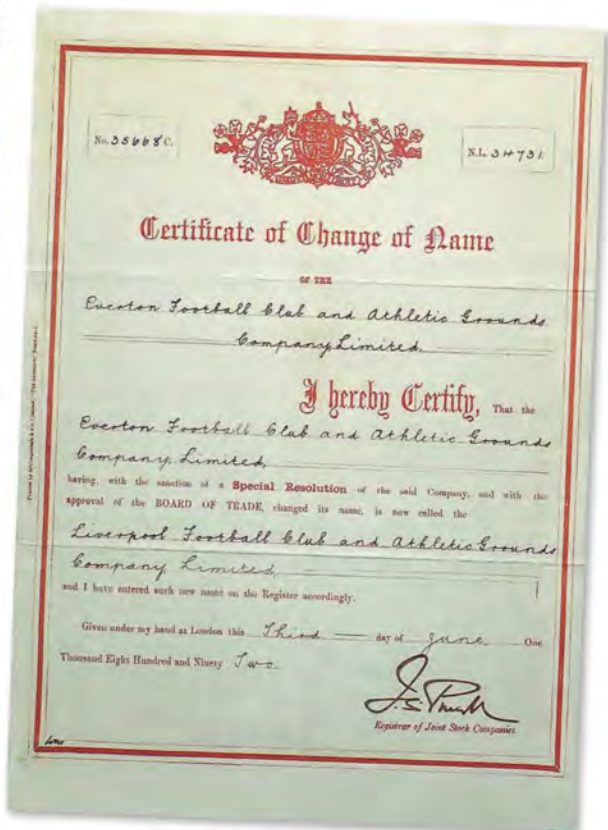 No. 35668 C.
N.L. 34731
Certificate of Change of Name
OF THE
Everton Football Club and Athletic Grounds
Company Limited.
I hereby Certify, That the
Everton Football Club and Athletic Grounds
Company, Limited,
having, with the sanction of a Special Resolution of the said Company, and with the
approval of the BOARD OF TRADE, changed its name, is now called the
Liverpool Football Club and Athletic Grounds
Company Limited,
and I have entered such new name on the Register accordingly.
Given under my hand at London this Third day of June One
Thousand Eight Hundred and Ninety Two.
Registrar of Joint Stock Companies.